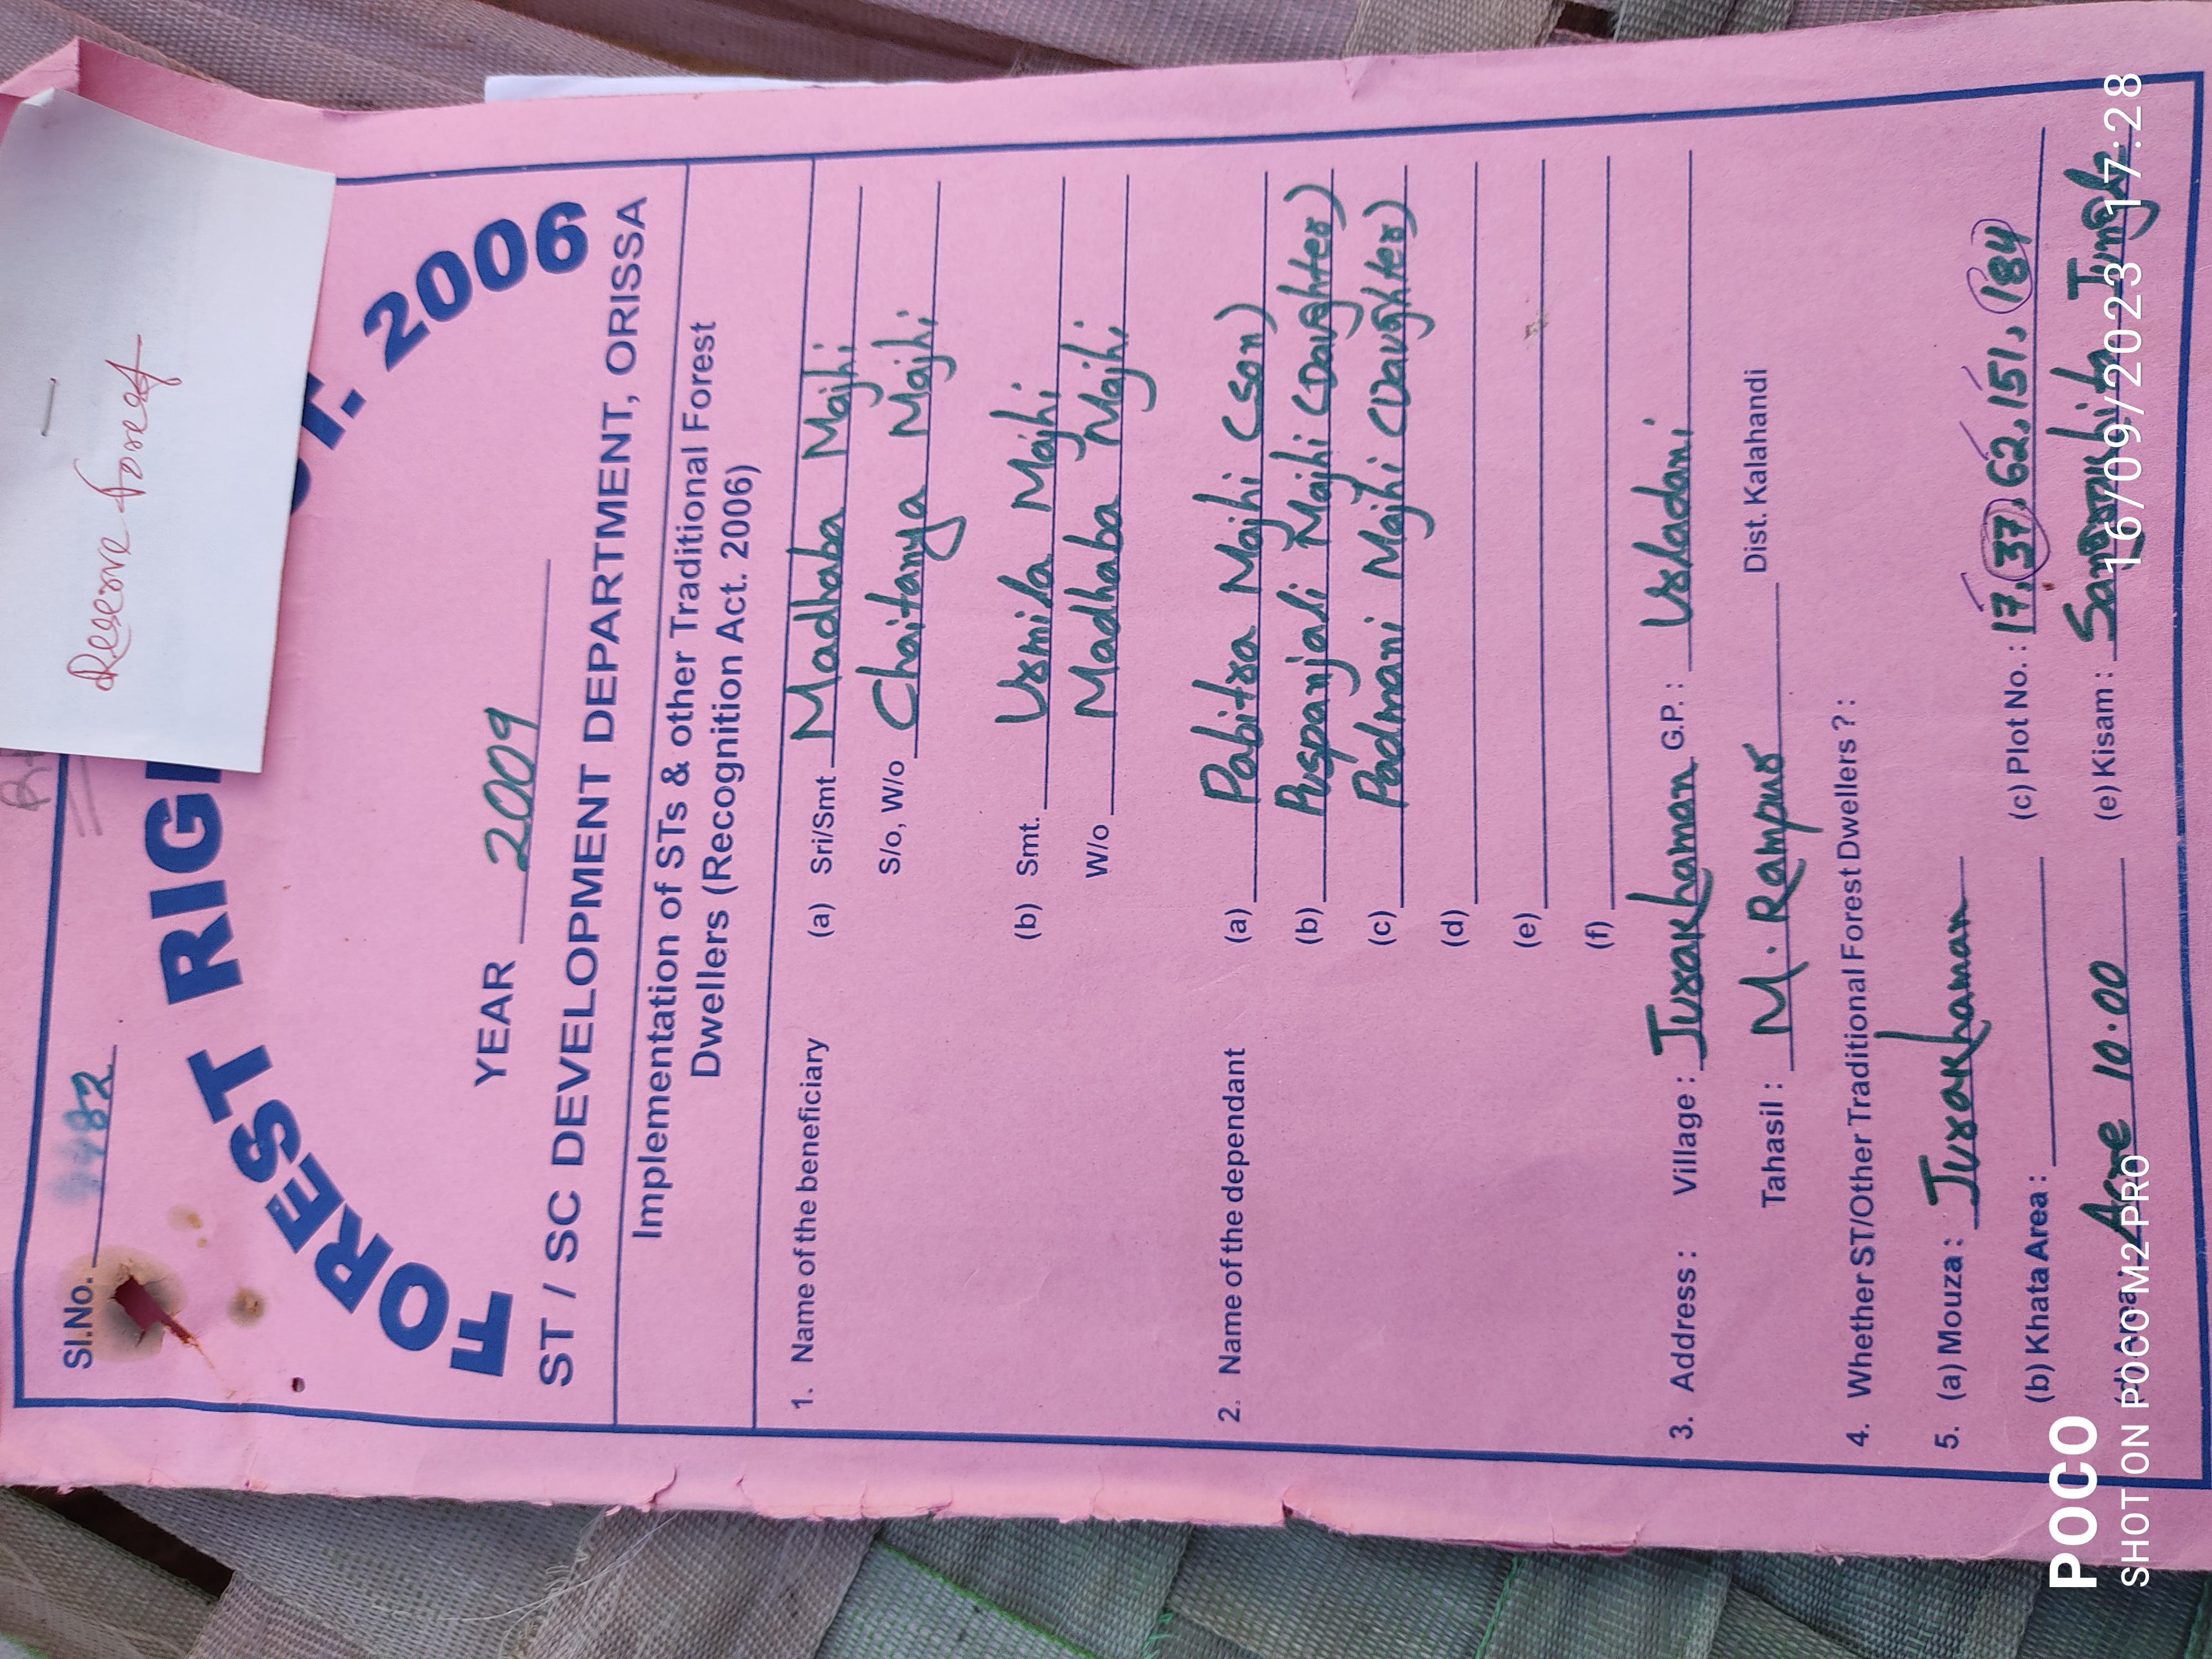 Reserve Forest
Sl.No. 482
FOREST RIG
T. 2006
YEAR 2009
ST / SC DEVELOPMENT DEPARTMENT, ORISSA
Implementation of STs & other Traditional Forest
Dwellers (Recognition Act. 2006)
1. Name of the beneficiary (a) Sri/Smt Madhaba Majhi
S/o, W/o Chaitanya Majhi
(b) Smt. Urmila Majhi
W/o Madhaba Majhi
2. Name of the dependant (a) Pabitra Majhi (son)
(b) Puspanjali Majhi (Daughter)
(c) Padmani Majhi (Daughter)
(d)
(e)
(f)
3. Address : Village : Jurakhaman G.P. : Urladani
Tahasil : M. Rampur Dist. Kalahandi
4. Whether ST/Other Traditional Forest Dwellers ? :
5. (a) Mouza : Jurakhaman
(b) Khata Area : (c) Plot No. : 17, 37, 62, 151, 184
(d) Area Acre 10.00 (e) Kisam :
POCO
SHOT ON POCO M2 PRO
16/09/2023 17:28